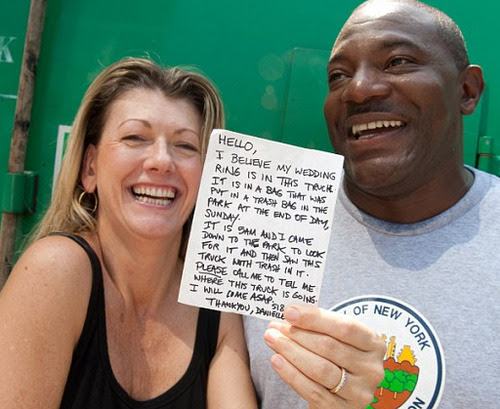 HELLO,
I BELIEVE MY WEDDING
RING IS IN THIS TRUCK
IT IS IN A BAG THAT WAS
PUT IN A TRASH BAG IN THE
PARK AT THE END OF DAY,
SUNDAY.
IT IS 5AM AND I CAME
DOWN TO THE PARK TO LOOK
FOR IT AND THEN SAW THIS
TRUCK WITH TRASH IN IT.
PLEASE CALL ME TO TELL ME
WHERE THIS TRUCK IS GOING.
I WILL COME ASAP. 518
THANKYOU, DANIELLE
OF NEW YORK